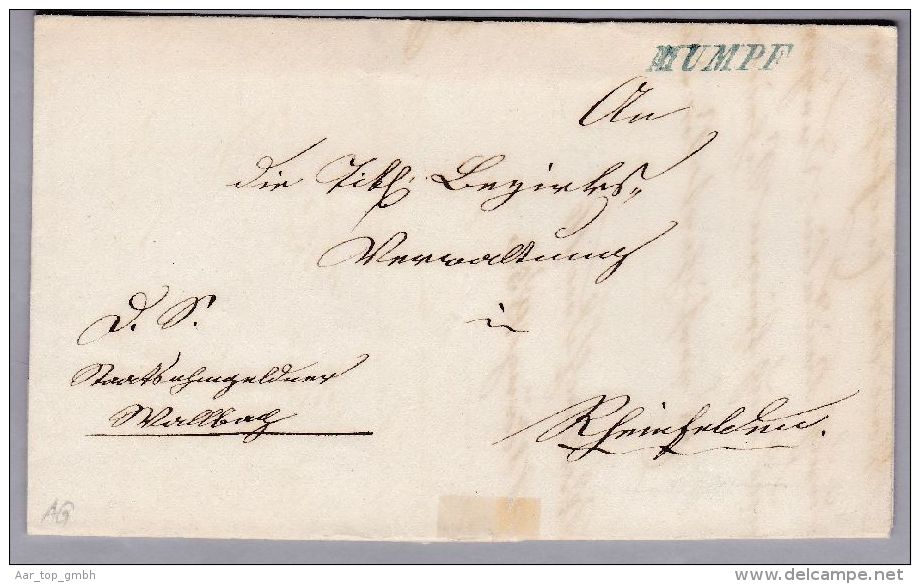 MUMPF
An
die Titl. Bezirks-
Verwaltung
D. S.
in
Staatsohmgeldner
Wallbach
Rheinfelden.
AG
Aar_top_gmbh
delcampe.net